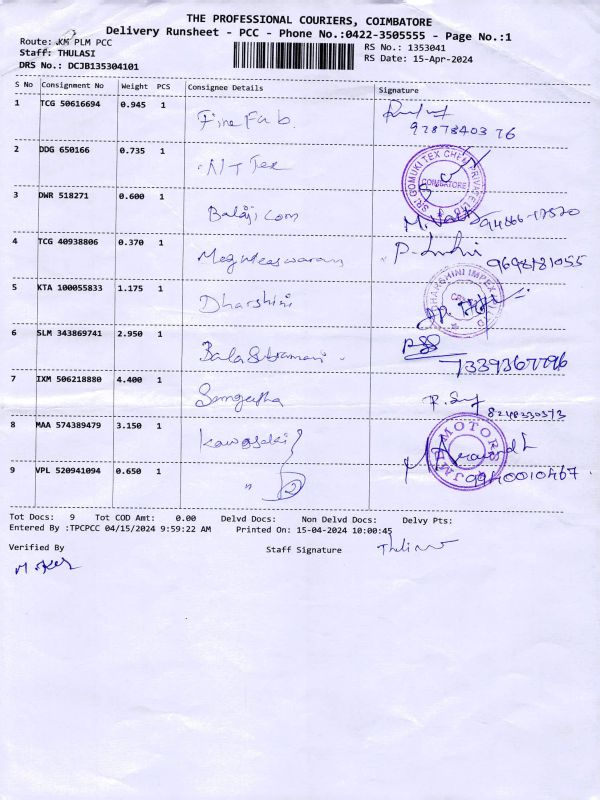 THE PROFESSIONAL COURIERS, COIMBATORE
Delivery Runsheet - PCC - Phone No.:0422-3505555 - Page No.:1
Route: KM PLM PCC
RS No.: 1353041
Staff: THULASI
RS Date: 15-Apr-2024
DRS No.: DCJB135304101
S No Consignment No Weight PCS Consignee Details Signature
1 TCG 50616694 0.945 1 Fine Fab
2 DDG 650166 0.735 1 NT Tex
SRI GOMUKI TEX CHEM PRIVATE
COIMBATORE
3 DWR 518271 0.600 1 Balaji Com
4 TCG 40938806 0.370 1 Megmeaswaran 9698181055
5 KTA 100055833 1.175 1 Dharshini
DHARSHINI IMPEX
6 SLM 343869741 2.950 1 Bala Subramani
7339367796
7 IXM 506218880 4.400 1 Sangeetha
8248330373
8 MAA 574389479 3.150 1 Kawasaki
MOTOR
9 VPL 520941094 0.650 1 " 2 9940010467
Tot Docs: 9 Tot COD Amt: 0.00 Delvd Docs: Non Delvd Docs: Delvy Pts:
Entered By :TPCPCC 04/15/2024 9:59:22 AM Printed On: 15-04-2024 10:00:45
Verified By Staff Signature